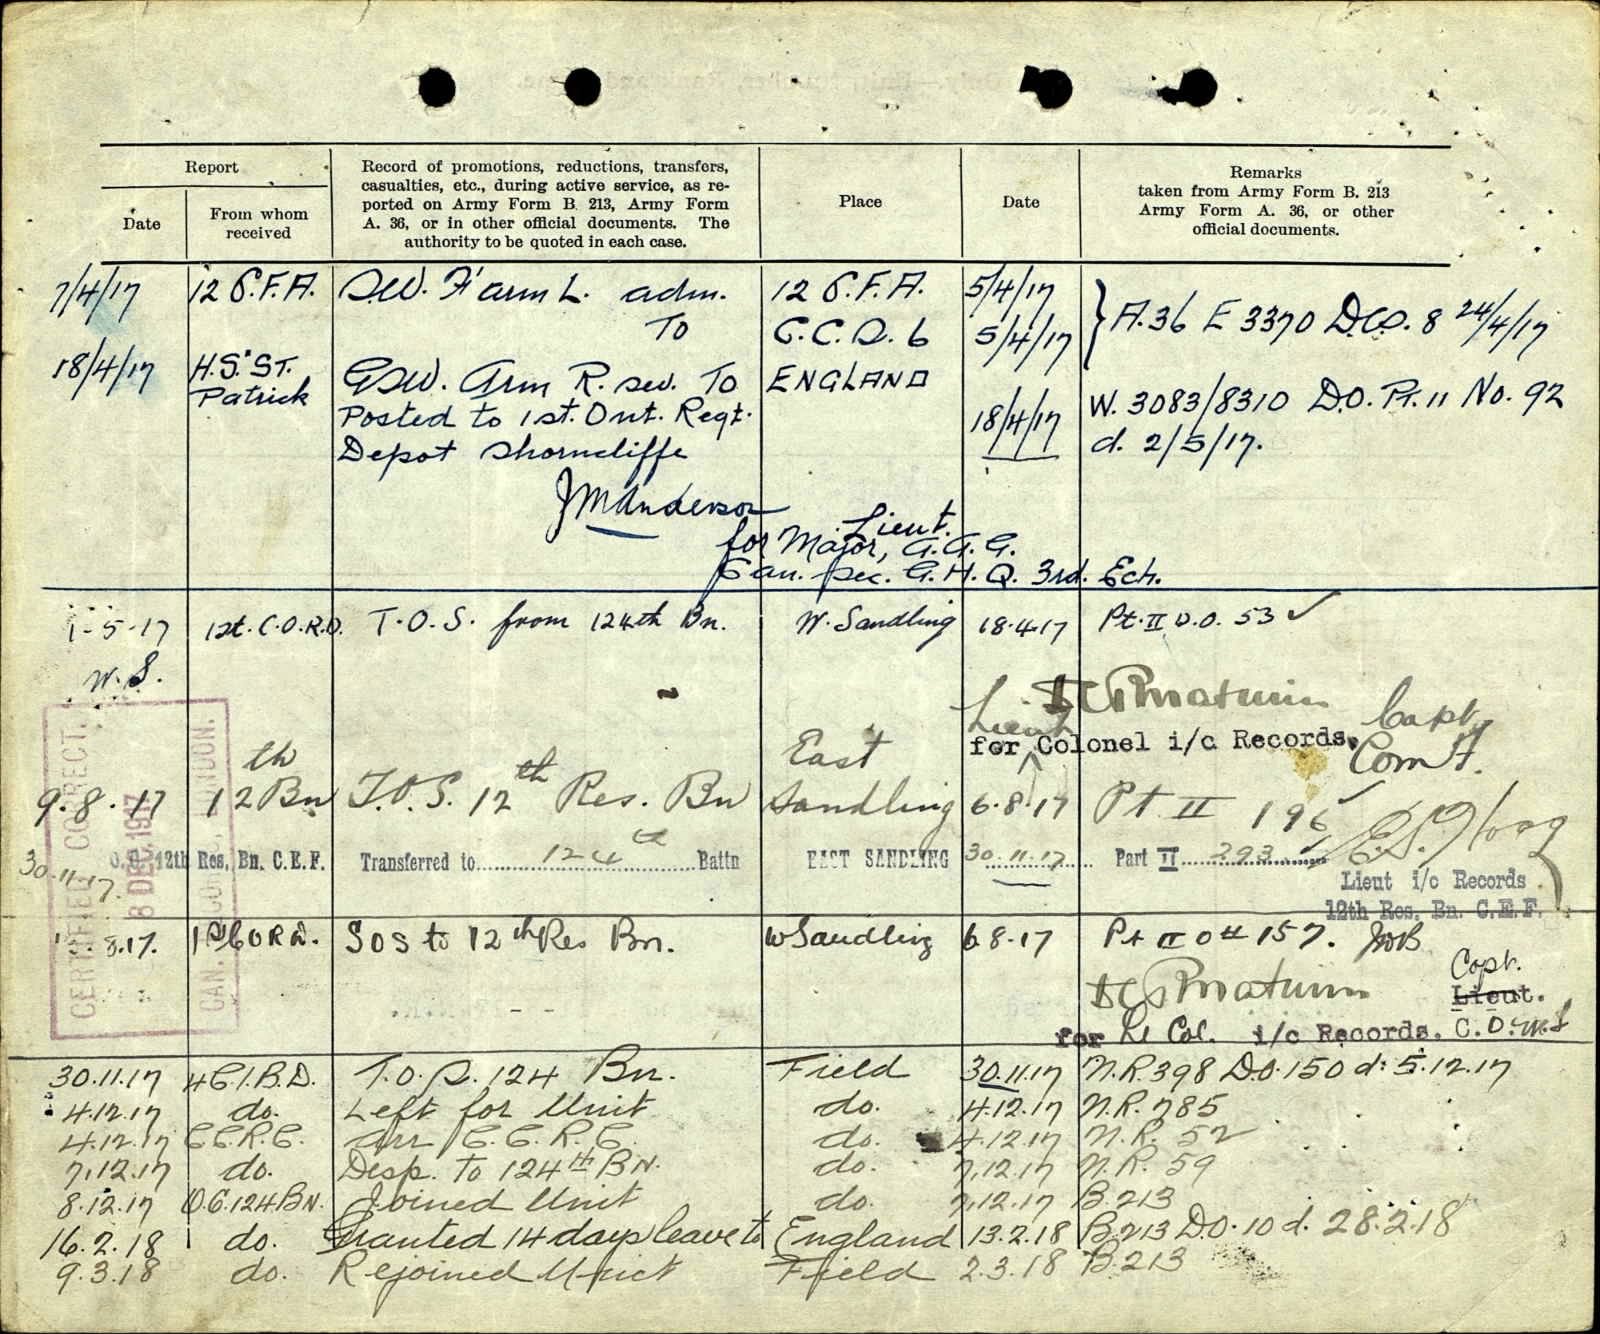 Report
Date
From whom
received
Record of promotions, reductions, transfers,
casualties, etc., during active service, as re-
ported on Army Form B. 213, Army Form
A. 36, or in other official documents. The
authority to be quoted in each case.
Place
Date
Remarks
taken from Army Form B. 213
Army Form A. 36, or other
official documents.
7/4/17 12 C.F.A. SW. F'arm L. adm. 12 C.F.A. 5/4/17
To C.C.S. 6 5/4/17 } A.36 E 3370 D.O. 8 24/4/17
18/4/17 H.S. "ST. Patrick GSW. Arm R. sev. To ENGLAND
Posted to 1st. Ont. Regt. 18/4/17 W. 3083/8310 D.O. Pt. 11 No. 92
Depot Shorncliffe d. 2/5/17.
JMAnderson
Lieut.
for Major, A.A.G.
Can. Sec. G.H.Q. 3rd. Ech.
1-5-17 1st. C.O.R.D. T.O.S. from 124th Bn. W. Sandling 18.4.17 Pt. II D.O. 53 ✓
W.S.
Lieut Capt
for Colonel i/c Records.
9.8.17 12th Bn T.O.S. 12th Res. Bn East Sandling 6.8.17 Pt II 196 ✓
30.11.17. O.C. 12th Res, Bn. C.E.F. Transferred to 124th Battn EAST SANDLING 30.11.17 Part II 293
Lieut i/c Records
12th Res. Bn. C.E.F.
CERTIFIED CORRECT.
8 DEC 1917
CAN. LONDON.
8.17. 1st CORD. SOS to 12th Res Bn. W Sandling 6.8.17 Pt II O 157.
Capt.
Lieut.
for Lt Col. i/c Records.
30.11.17 4 C.I.B.D. T.O.S. 124 Bn. Field 30.11.17 N.R. 398 D.O. 150 d: 5.12.17
4.12.17 do. Left for Unit do. 4.12.17 N.R. 785
4.12.17 C.C.R.C. Arr C.C.R.C. do. 4.12.17 N.R. 52
7.12.17 do. Desp. To 124th BN. do. 7.12.17 N.R. 59
8.12.17 O.C. 124 BN. Joined Unit do. 7.12.17 B.213
16.2.18 do. Granted 14 days leave to England 13.2.18 B.213 D.O. 10 d. 28.2.18
9.3.18 do. Rejoined Unit Field 2.3.18 B.213